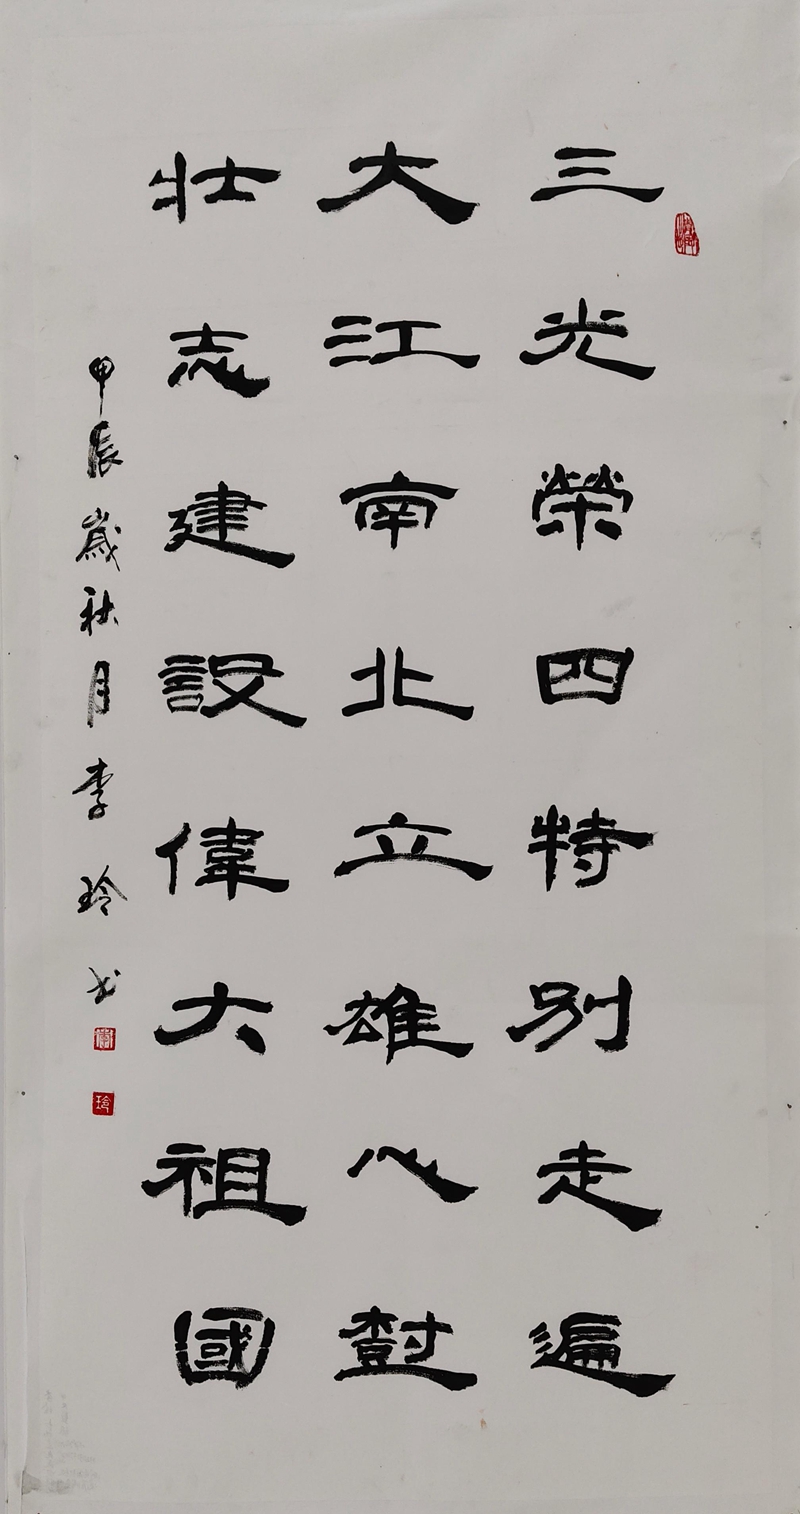 三光榮四特別走遍
大江南北立雄心樹
壯志建設偉大祖國
甲辰歲秋月李玲书
玲